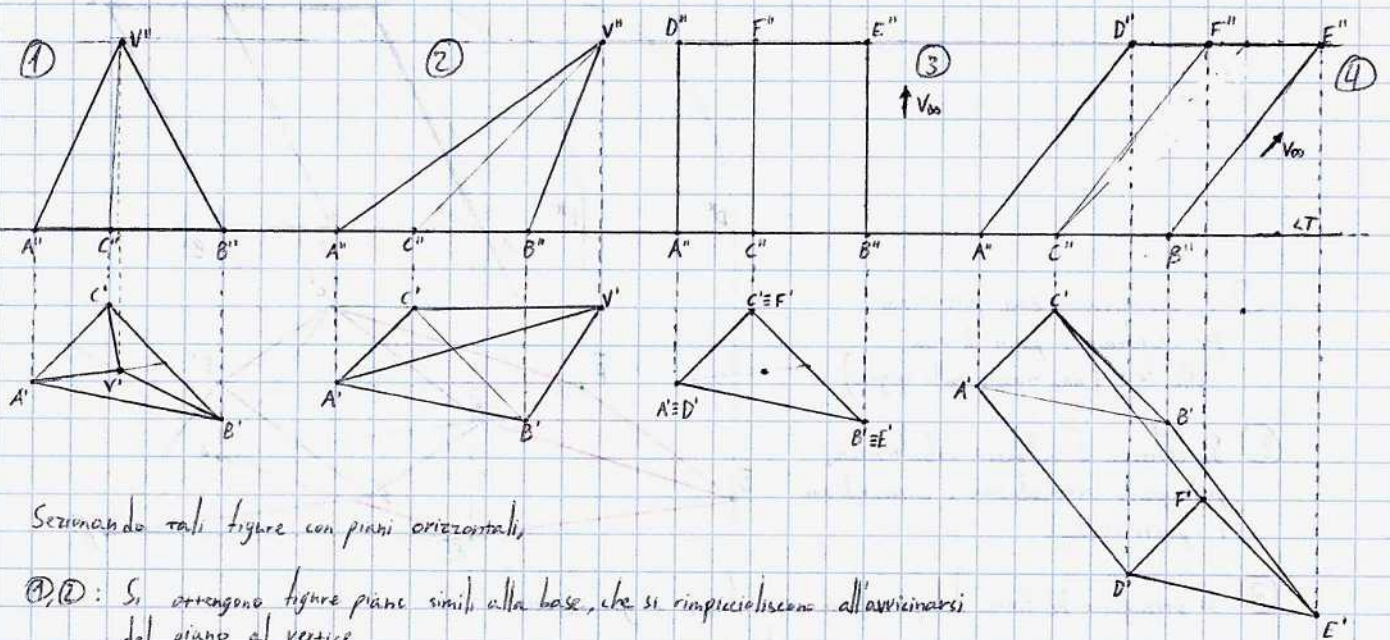 ① V'' ② V'' D'' F'' E'' ③ D'' F'' E'' ④
V∞ V∞
A'' C'' B'' A'' C'' B'' A'' C'' B'' A'' C'' B'' LT
C' C' V' C'≡F' C'
A' V' B' A' B' A'≡D' B'≡E' A' B'
F'
D'
E'
Sezionando tali figure con piani orizzontali,
①,②: Si ottengono figure piane simili alla base, che si rimpiccioliscono all'avvicinarsi
del piano al vertice